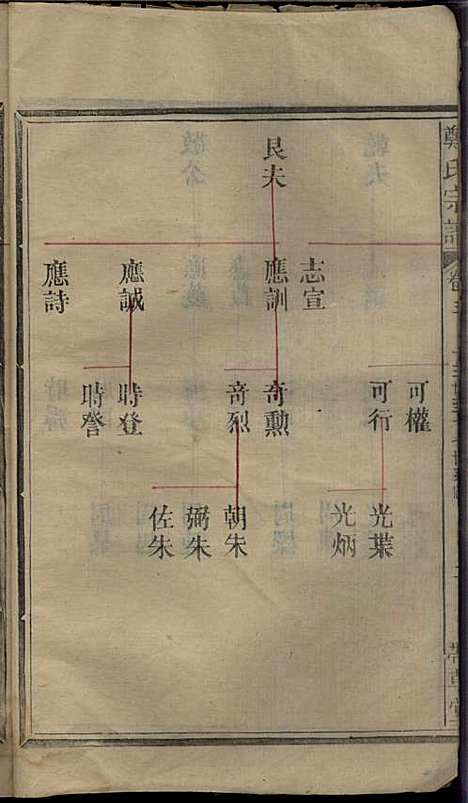 鄭氏宗譜
卷
艮夫
志宣
應訓
應誠
應詩
可權
可行
奇勳
奇烈
時登
時謦
光葉
光炳
朝朱
弼朱
佐朱